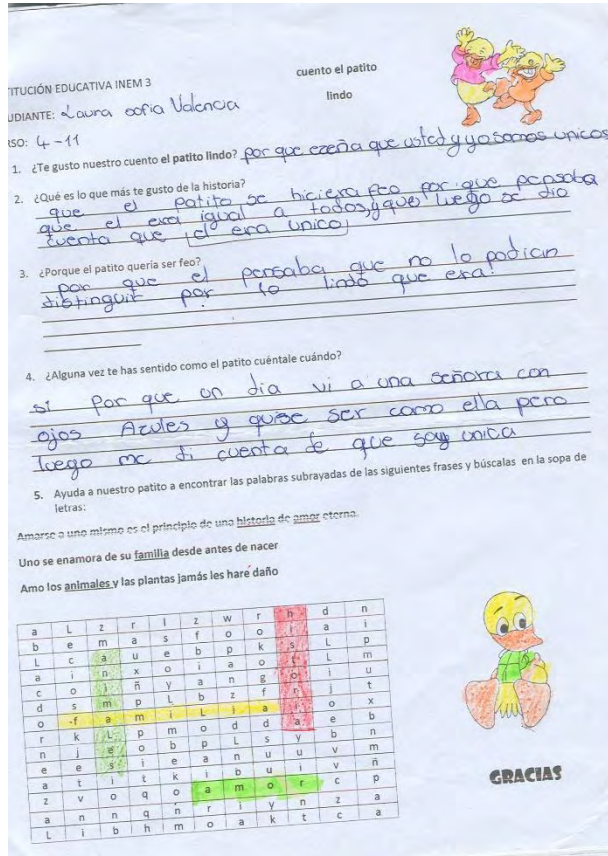 cuento el patito
lindo
TITUCIÓN EDUCATIVA INEM 3
UDIANTE: Laura sofia Valencia
RSO: 4-11
1. ¿Te gusto nuestro cuento el patito lindo? por que ezeña que usted y yo somos unicos
2. ¿Qué es lo que más te gusto de la historia?
que el patito se hiciera feo por que pensaba
que el era igual a todos, y que luego se dio
cuenta que el era unico
3. ¿Porque el patito quería ser feo?
por que el pensaba que no lo podian
distinguir por lo lindo que era!
4. ¿Alguna vez te has sentido como el patito cuéntale cuándo?
si por que un dia vi a una señora con
ojos Azules y quise ser como ella pero
luego me di cuenta de que soy unica
5. Ayuda a nuestro patito a encontrar las palabras subrayadas de las siguientes frases y búscalas en la sopa de
letras:
Amarse a uno mismo es el principio de una historia de amor eterna.
Uno se enamora de su familia desde antes de nacer
Amo los animales y las plantas jamás les haré daño
a L z r l z w r h d n
b e m a s f o o i a i
L c a u e b p k s L p
a i n x o i a o t L m
c o i ñ y a n g o i u
d s m p L b z f r j t
o f a m i L i a i o x
r k L p m o d d a e b
n j e o b p L s y b n
e e s i e a n u u v m
a t i t k i b u i v ñ
z v o q o a m o r c p
a n n q n r i y n z a
L i b h m o a k t c a
GRACIAS